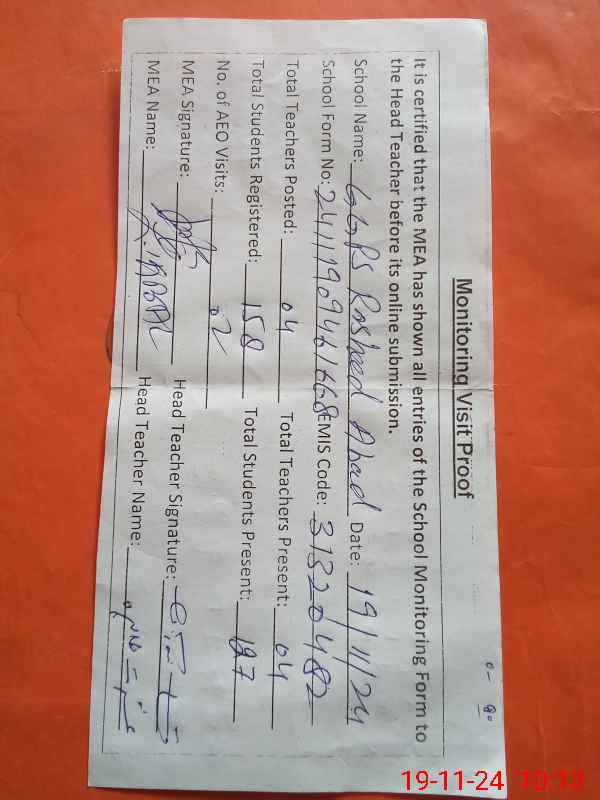 Monitoring Visit Proof
It is certified that the MEA has shown all entries of the School Monitoring Form to
the Head Teacher before its online submission.
School Name: GGPS Rasheed Abad Date: 19/11/24
School Form No: 24111909461668 EMIS Code: 31320482
Total Teachers Posted: 04 Total Teachers Present: 04
Total Students Registered: 158 Total Students Present: 127
No. of AEO Visits: 02
MEA Signature: Head Teacher Signature:
MEA Name: Head Teacher Name:
19-11-24 10:13